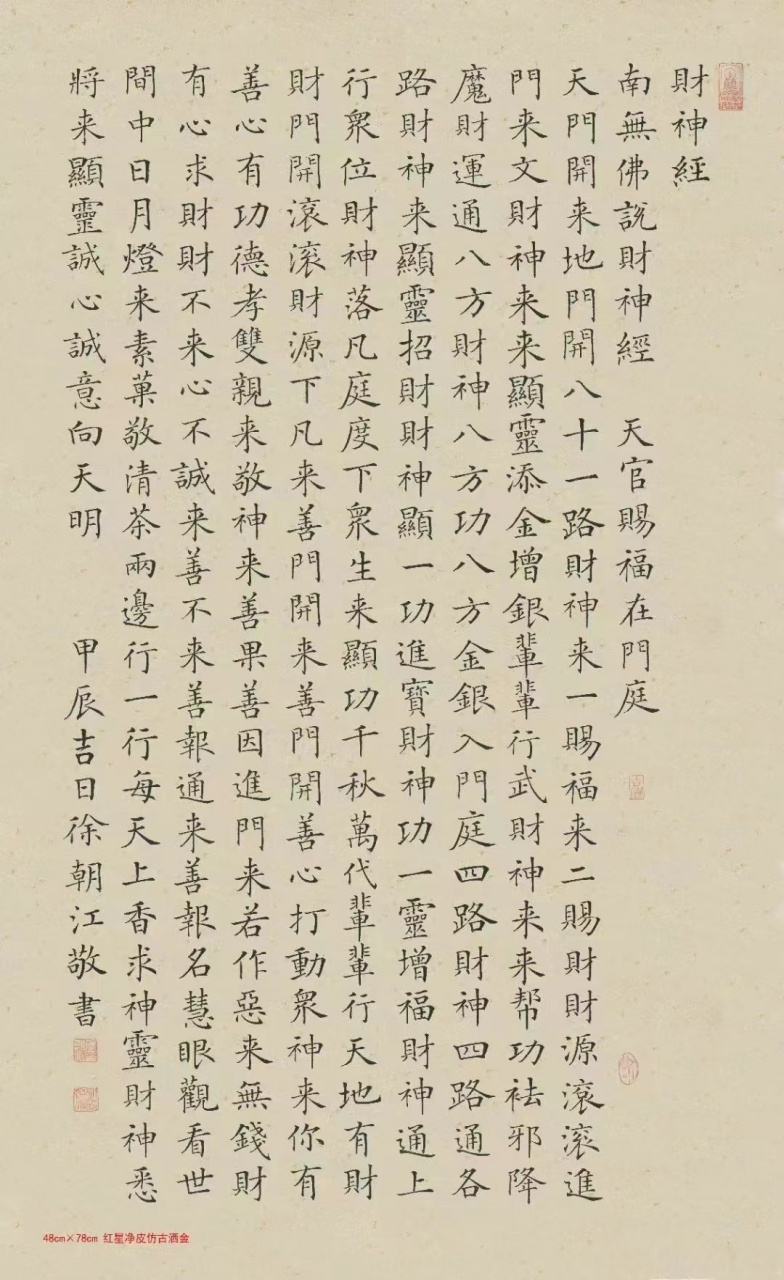 財神經
南無佛説財神經 天官賜福在門庭
天門開来地門開八十一路財神来一賜福来二賜財財源滚滚進
門来文財神来来顯靈添金增銀輩輩行武財神来来帮功祛邪降
魔財運通八方財神八方功八方金銀入門庭四路財神四路通各
路財神来顯靈招財財神顯一功進寶財神功一靈增福財神通上
行衆位財神落凡庭度下衆生来顯功千秋萬代輩輩行天地有財
財門開滚滚財源下凡来善門開来善門開善心打動衆神来你有
善心有功德孝雙親来敬神来善果善因進門来若作惡来無錢財
有心求財財不来心不誠来善不来善報通来善報名慧眼觀看世
間中日月燈来素菓敬清茶兩邊行一行每天上香求神靈財神悉
將来顯靈誠心誠意向天明 甲辰吉日徐朝江敬書
48cm×78cm 红星净皮仿古洒金